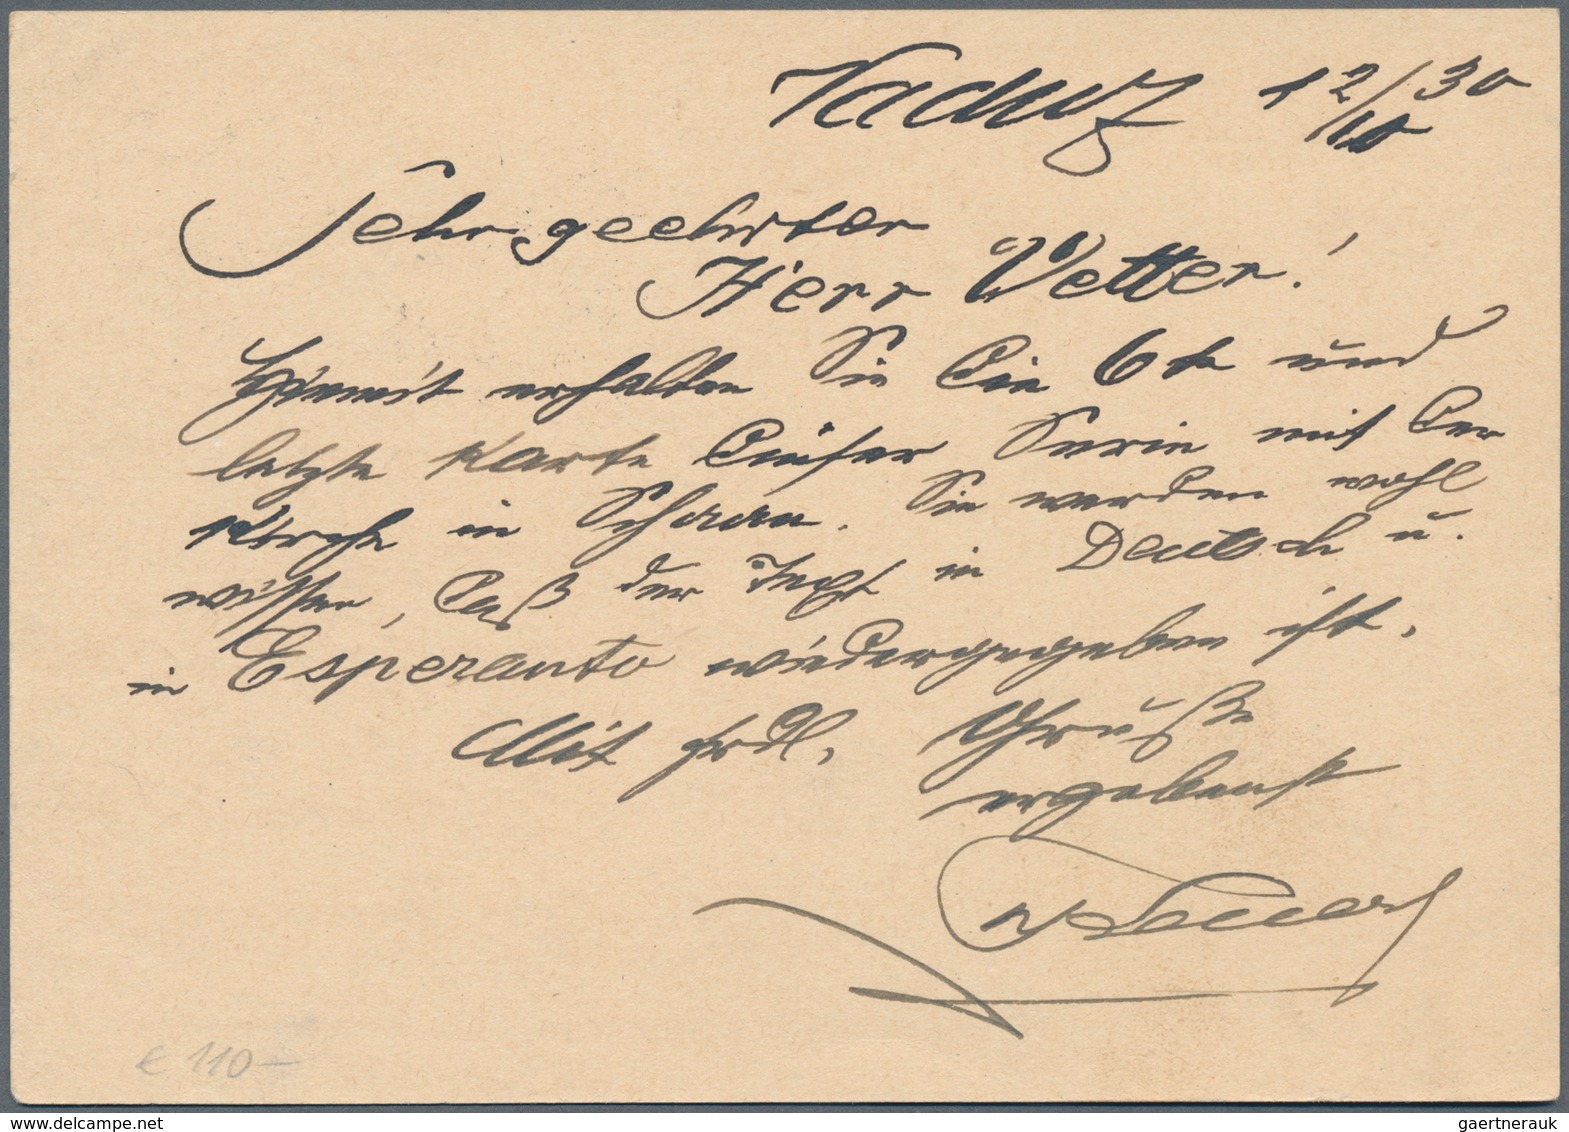 Vaduz 12/10 30
Sehr geehrter
Herr Vetter!
Hiermit erhalten Sie die 6te und
letzte Karte dieser Serie mit der
Kirche in Schaan. Sie werden wohl
wissen, daß der Text in Deutsch u.
in Esperanto wiedergegeben ist.
Mit frdl. Grüße
ergebenst
€ 110-
www.delcampe.net
gaertnerauk